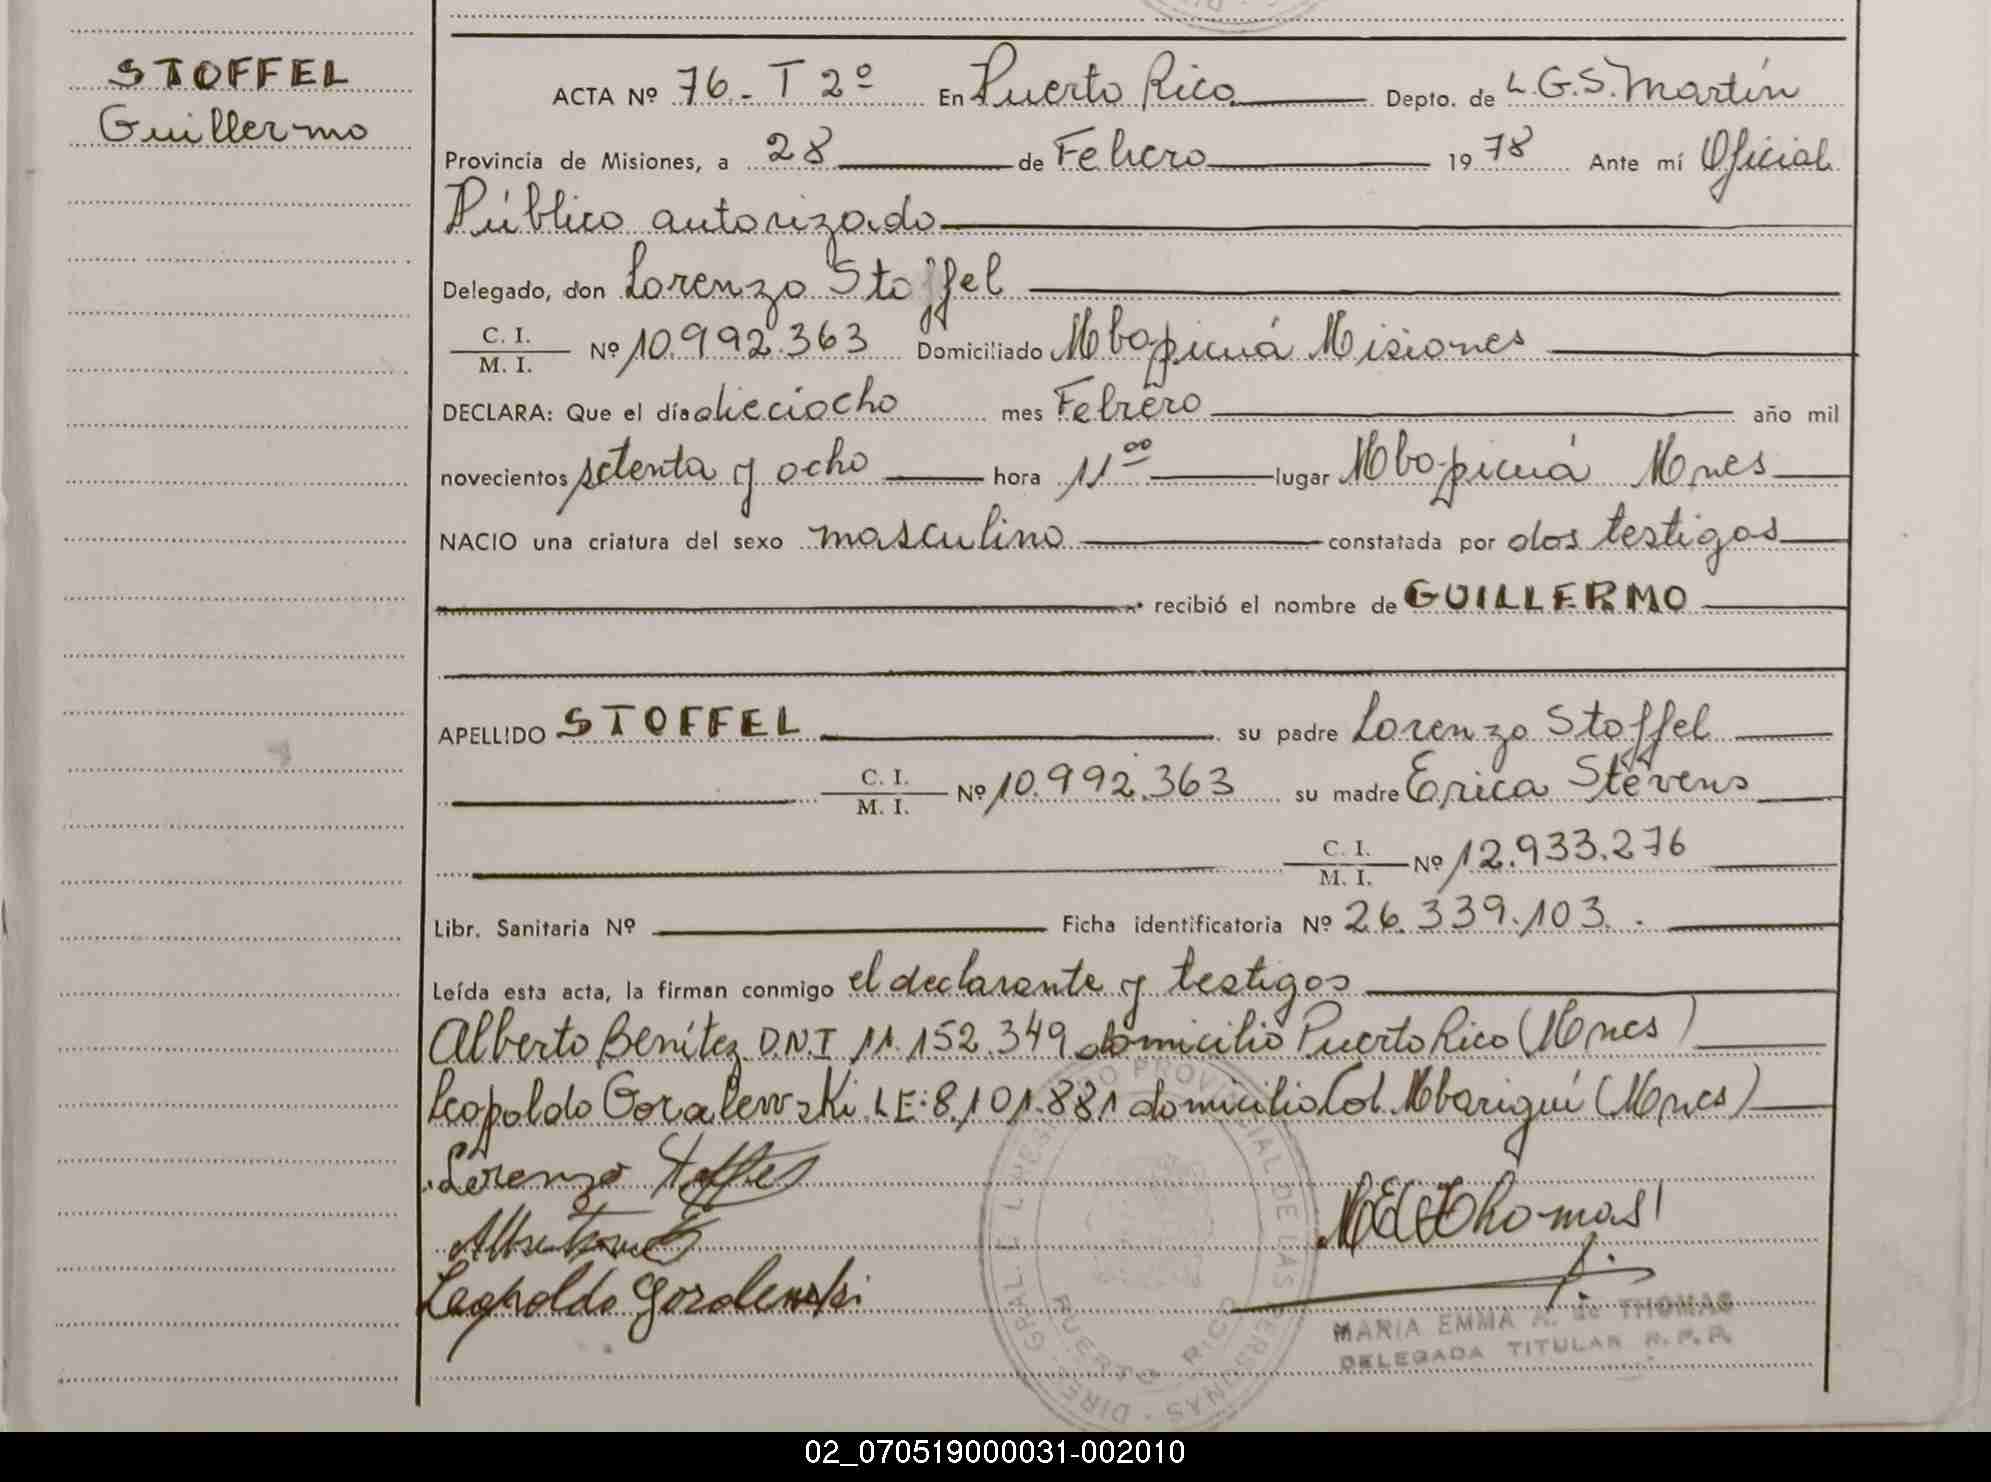 STOFFEL
Guillermo
ACTA Nº 76 - T 2º En Puerto Rico Depto. de L.G.S. Martín
Provincia de Misiones, a 28 de Febrero 1978 Ante mí Oficial
Público autorizado
Delegado, don Lorenzo Stoffel
C. I.
M. I. Nº 10.992.363 Domiciliado Mbopicuá Misiones
DECLARA: Que el día dieciocho mes Febrero año mil
novecientos setenta y ocho hora 11 00 lugar Mbopicuá Mnes
NACIO una criatura del sexo masculino constatada por dos testigos
recibió el nombre de GUILLERMO
APELLIDO STOFFEL su padre Lorenzo Stoffel
C. I.
M. I. Nº 10.992.363 su madre Erica Stevens
C. I.
M. I. Nº 12.933.276
Libr. Sanitaria Nº Ficha identificatoria Nº 26.339.103.-
Leída esta acta, la firman conmigo el declarante y testigos
Alberto Benítez D.N.I 11.152.349 domicilio Puerto Rico (Mnes)
Leopoldo Goralewski LE: 8.101.881 domicilio Col. Mbariguí (Mnes)
Lorenzo Stoffel
Leopoldo Goralewski
MARIA EMMA A. de THOMAS
DELEGADA TITULAR R. P. P.
DIRE. GRAL. E L REGISTRO PROVINCIAL DE LAS PERSONAS
PUERTO RICO
02_070519000031-002010